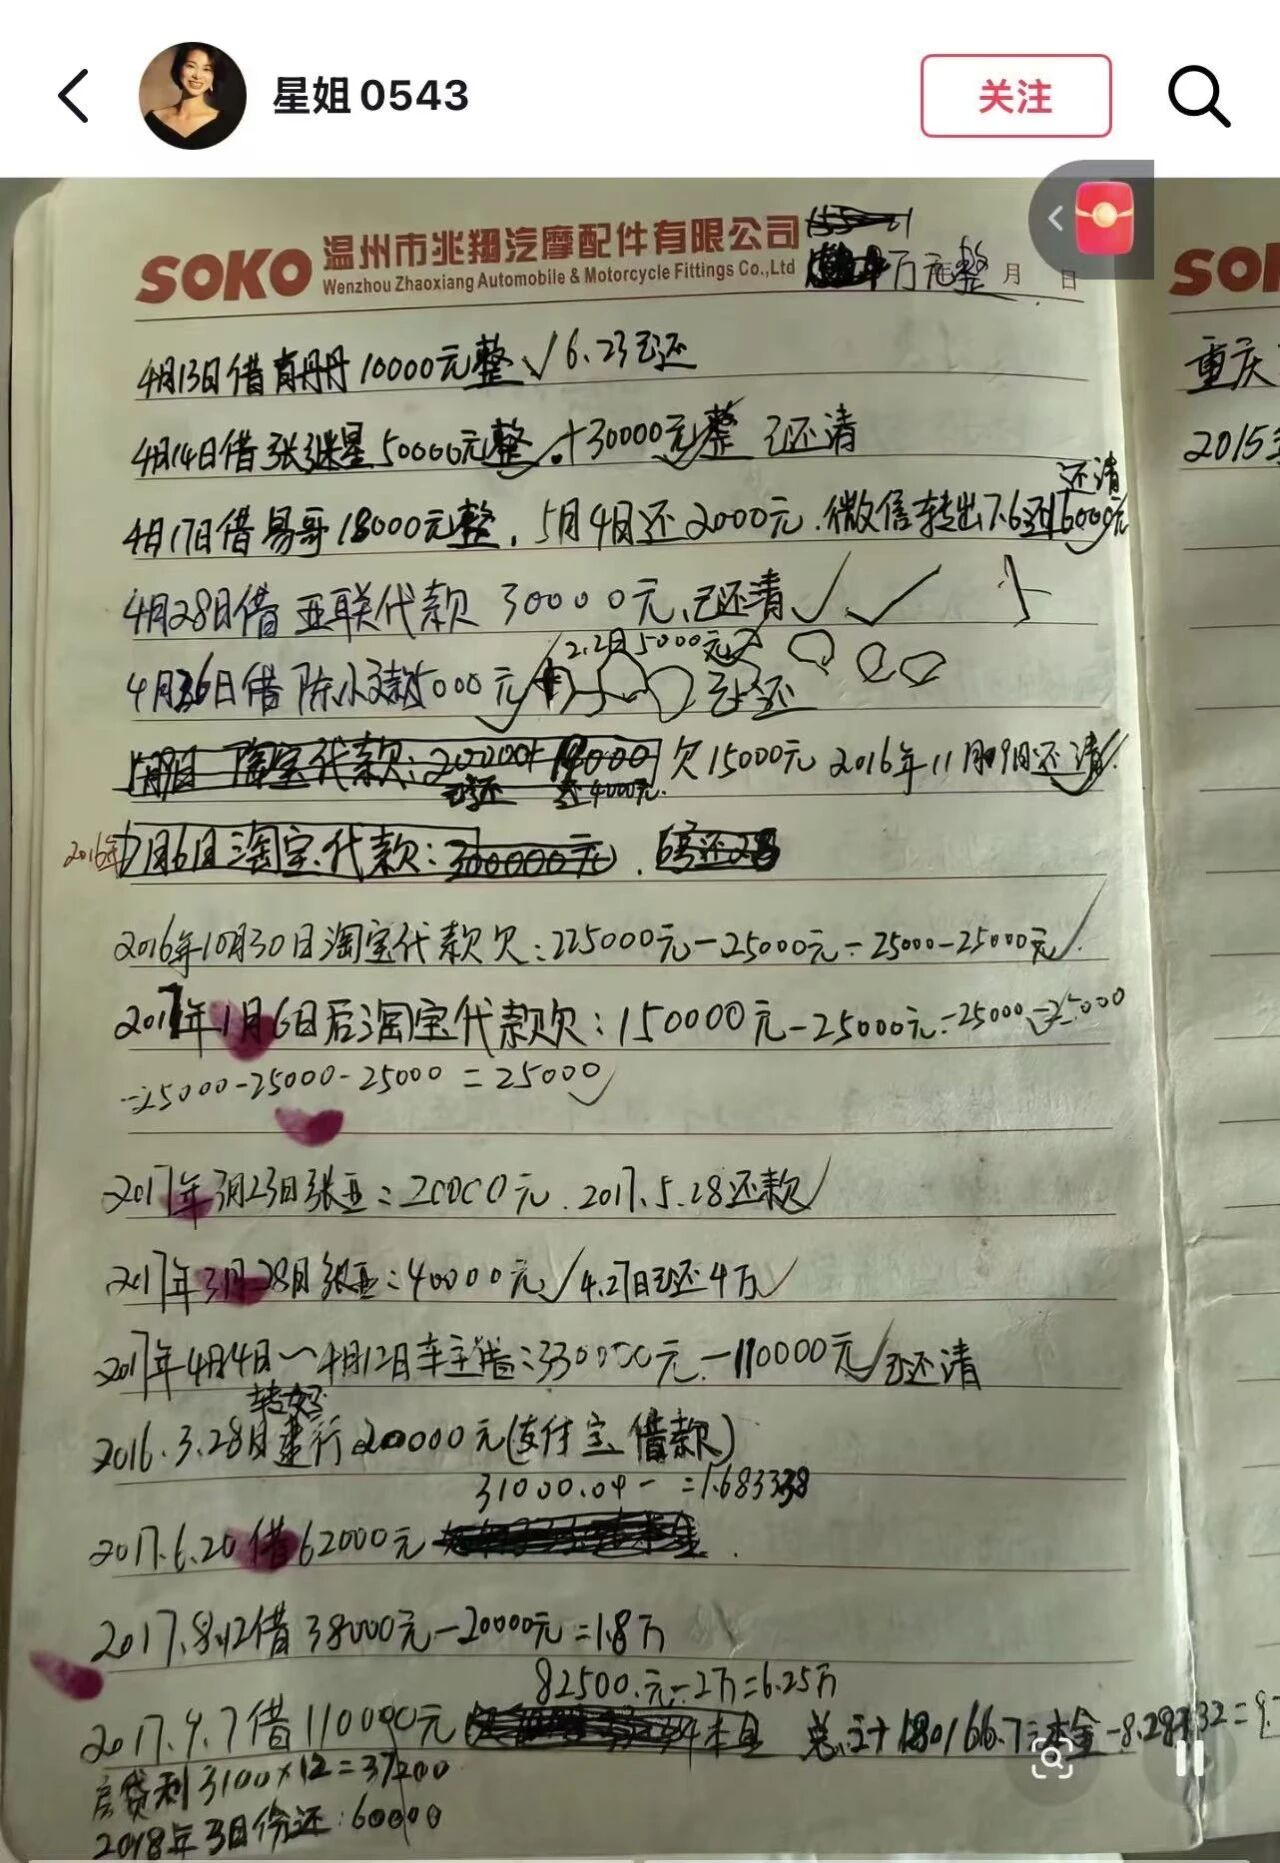 星姐0543
关注
SOKO 温州市兆翔汽摩配件有限公司
Wenzhou Zhaoxiang Automobile & Motorcycle Fittings Co.,Ltd
万元整 月 日
4月13日借 丹丹10000元整√6.23已还
4月14日借张继星50000元整√+30000元整 已还清
还清
4月17日借易哥18000元整,5月4日还2000元.微信转出7.6还16000元
4月28日借亚联代款 30000元,已还清√√
2.2日5000元
4月 日借陈小 款5000元 已还
淘宝代款:200000+ 欠15000元 2016年11月 日还清√
已还 还4000元
2016年7月6日淘宝代款:300000元.
2016年10月30日淘宝代款欠:225000元-25000元-25000-25000元√
2017年1月6日后淘宝代款欠:150000元-25000元-25000-25000
-25000-25000-25000=25000√
2017年3月23日张亚:20000元.2017.5.28还款√
2017年3月28日张亚:40000元√4.27日已还4万√
2017年4月4日~4月12日车主借:330000元-110000元√已还清
2016.3.28日建行200000元(支付宝借款)
31000.04- =1.683338
2017.6.20借62000元
2017.8.12借38000元-20000元=1.8万
82500.元-2万=6.25万
2017.9.7借110000元 总计180166.7 本金
房贷利3100×12=37200
2018年3月份还:60000
SO
重庆
2015